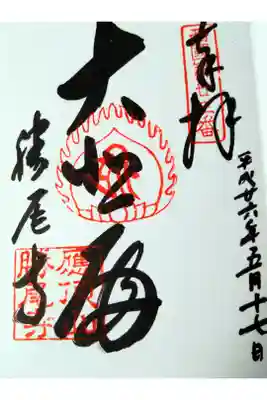 奉拝
平成廿六年五月十七日
大悲殿
勝尾寺
應頂山
勝尾寺